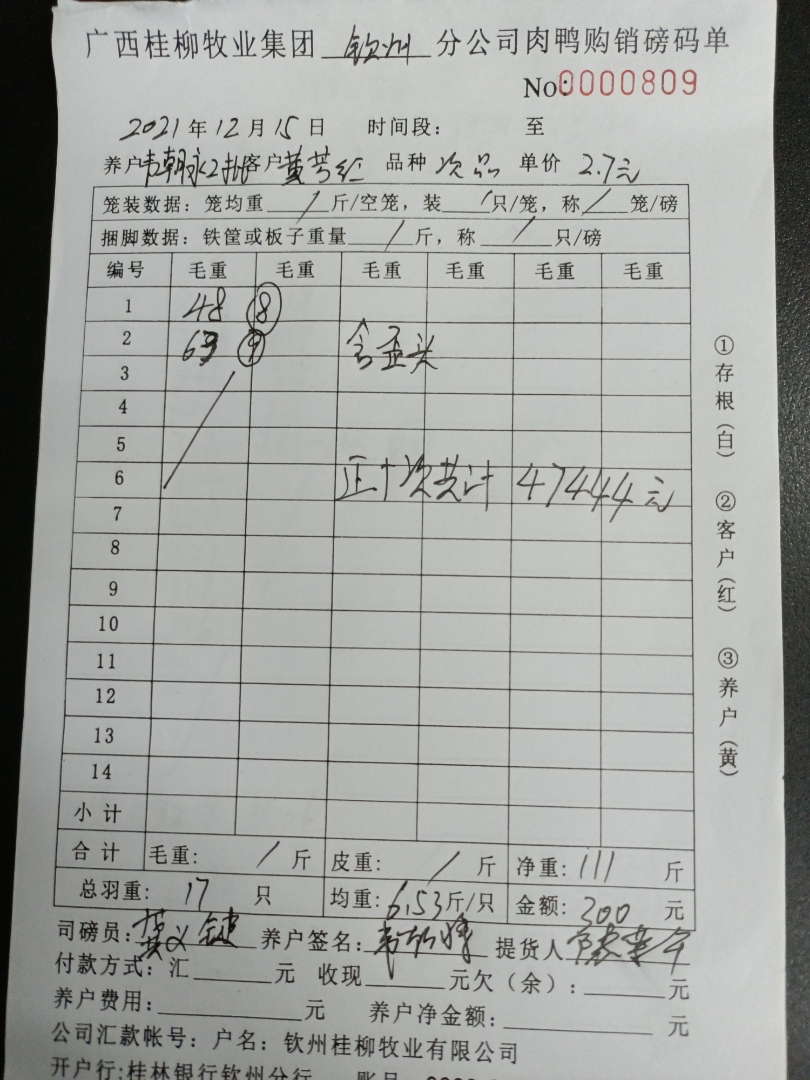 广西桂柳牧业集团 钦州 分公司肉鸭购销磅码单
No:0000809
2021年12月15日 时间段: 至
养户 韦朝永2批 客户 黄芳红 品种 次品 单价 2.7元
笼装数据: 笼均重 / 斤/空笼, 装 / 只/笼, 称 / 笼/磅
捆脚数据: 铁筐或板子重量 / 斤, 称 / 只/磅
编号 毛重 毛重 毛重 毛重 毛重 毛重
1 48 ⑧
2 63 ⑨ 含歪头
3
4
5
6 正十次共计 47444元
7
8
9
10
11
12
13
14
小计
合计 毛重: / 斤 皮重: / 斤 净重: 111 斤
总羽重: 17 只 均重: 6.53斤/只 金额: 300 元
司磅员: 养户签名: 提货人
付款方式: 汇 元 收现 元欠(余): 元
养户费用: 元 养户净金额: 元
公司汇款帐号: 户名: 钦州桂柳牧业有限公司
开户行:桂林银行钦州分行
①存根(白) ②客户(红) ③养户(黄)